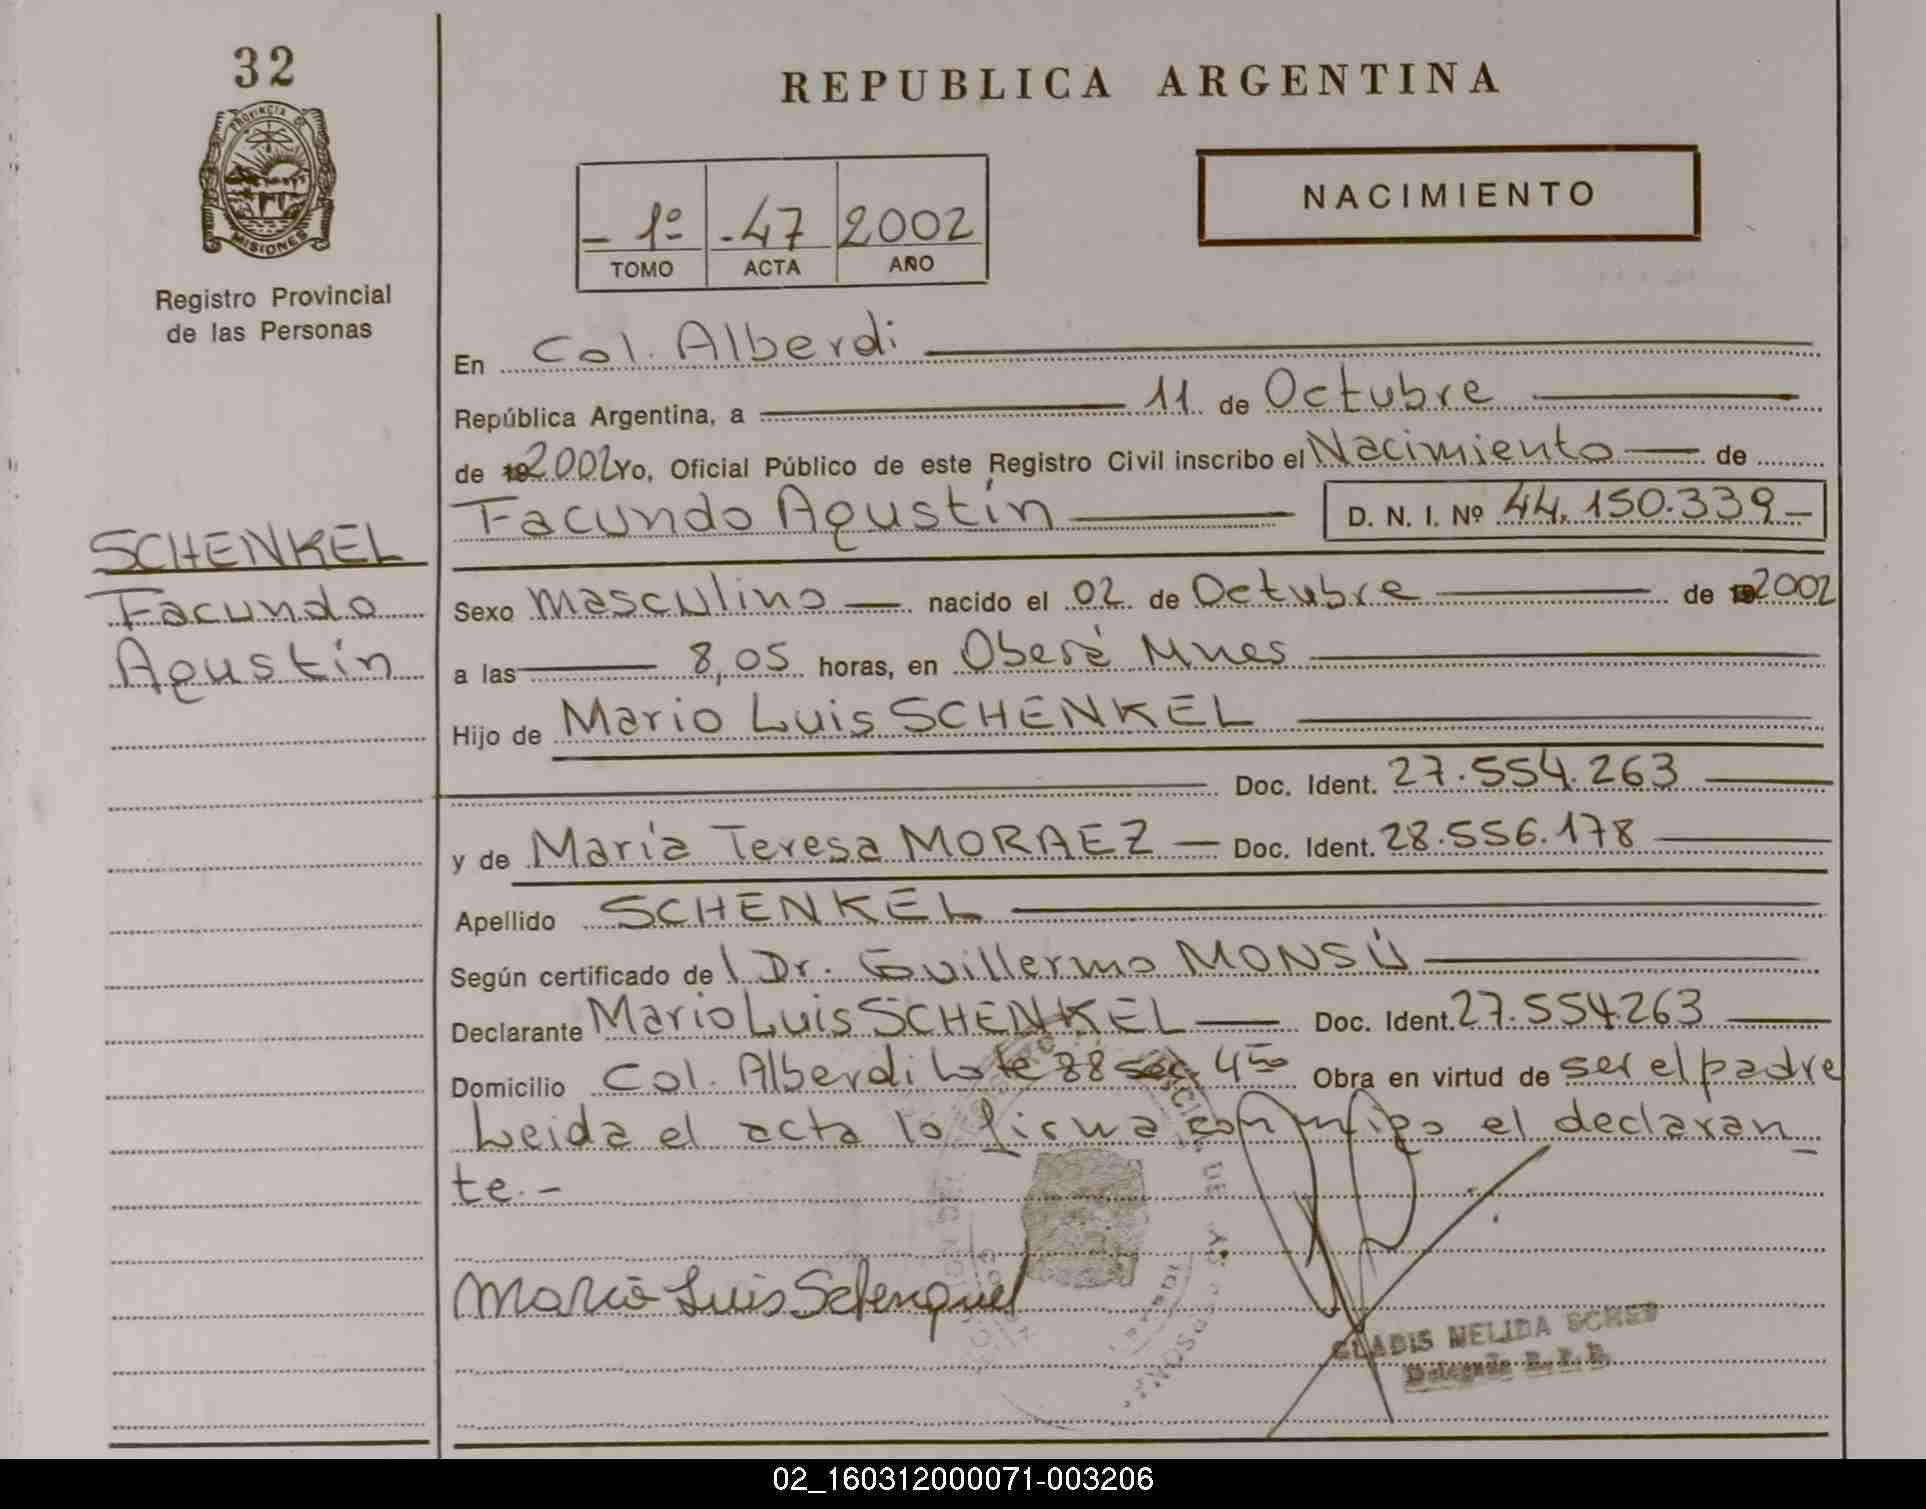 32
REPUBLICA ARGENTINA
PROVINCIA DE
MISIONES
NACIMIENTO
- 1º -47 2002
TOMO ACTA AÑO
Registro Provincial
de las Personas
En Col. Alberdi
República Argentina, a 11 de Octubre
de 2002 Yo, Oficial Público de este Registro Civil inscribo el Nacimiento de
Facundo Agustín D. N. I. Nº 44.150.339-
SCHENKEL
Facundo
Agustín
Sexo masculino nacido el 02 de Octubre de 2002
a las 8,05 horas, en Oberá Mnes
Hijo de Mario Luis SCHENKEL
Doc. Ident. 27.554.263
y de María Teresa MORAEZ Doc. Ident. 28.556.178
Apellido SCHENKEL
Según certificado del Dr. Guillermo MONSÚ
Declarante Mario Luis SCHENKEL Doc. Ident. 27.554263
Domicilio Col. Alberdi Lote 88 sec. 4ta Obra en virtud de ser el padre
Leida el acta la firma conmigo el declaran
te.-
Mario Luis Schenquel
GLADIS NELIDA
Delegada R. P. P.
02_160312000071-003206